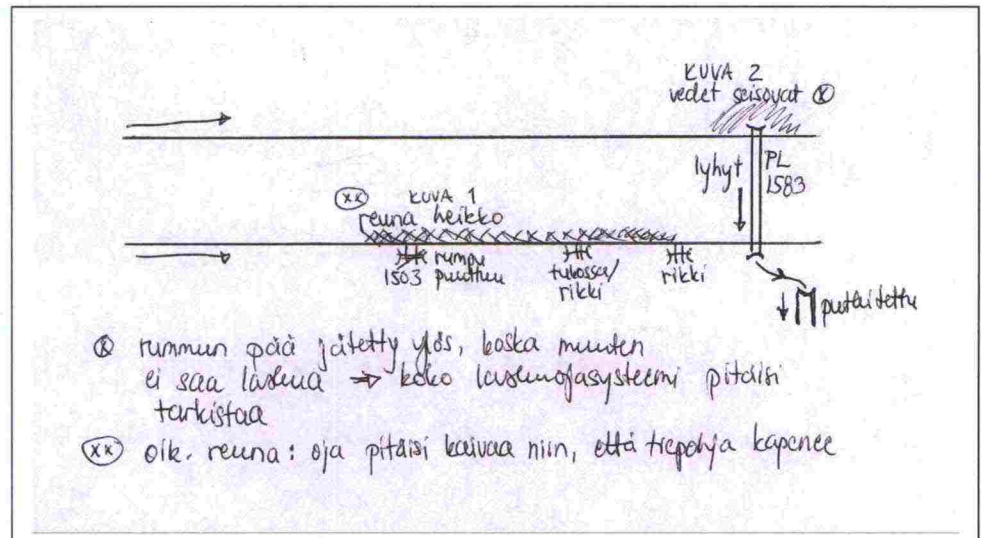 KUVA 2
vedet seisovat ⓧ
lyhyt
PL
1583
ⓧⓧ KUVA 1
reuna heikko
1503
rumpu
puuttuu
tukossa/
rikki
rikki
putkitettu
ⓧ rummun pää jätetty ylös, koska muuten
ei saa laskua ⇒ koko laskuojasysteemi pitäisi
tarkistaa
ⓧⓧ oik. reuna: oja pitäisi kaivaa niin, että tiepohja kapenee